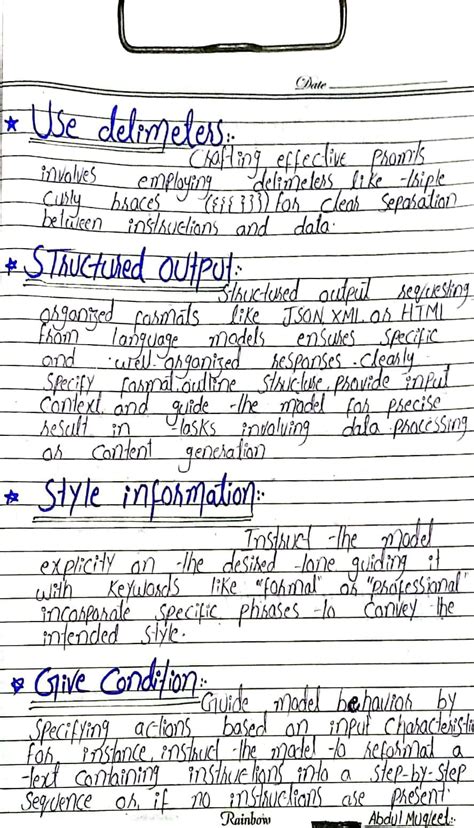 Date
* Use delimeters:-
Crafting effective Promts
involves employing delimeters like triple
curly braces ({{{ }}}) for clear Separation
between instructions and data.
* Structured output:-
Structured output requesting
organized formats like JSON XML or HTML
from language models ensures specific
and well-organized responses. Clearly
Specify format, outline Structure, Provide input
Context and guide the model for precise
result in tasks involving data processing
or content generation
* Style information:-
Instruct the model
explicity on the desired tone guiding it
with Keywords like "formal" or "Professional"
incorporate specific phrases to convey the
intended style.
* Give Condition:-
Guide model behavior by
Specifying actions based on input Characteristic
For instance, instruct the model to reformat a
text containing instructions into a step-by-step
Sequence or, if no instructions are present.
Rainbow Abdul Muqleet:-